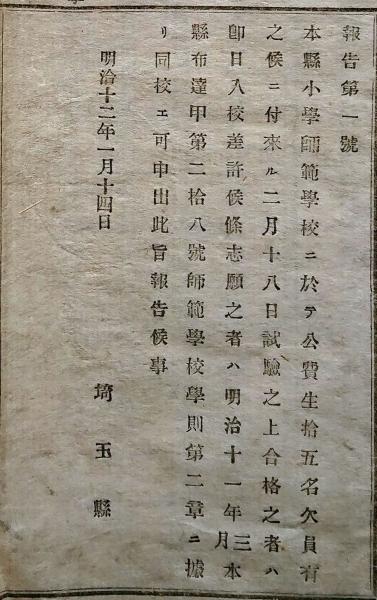 報告第一號
本縣小學師範學校ニ於テ公費生拾五名欠員有
之候ニ付來ル二月十八日試驗之上合格之者ハ
即日入校差許候條志願之者ハ明治十一年三月本
縣布達甲第二拾八號師範學校學則第二章ニ據
リ同校エ可申出此旨報告候事
明治十二年一月十四日
埼玉縣